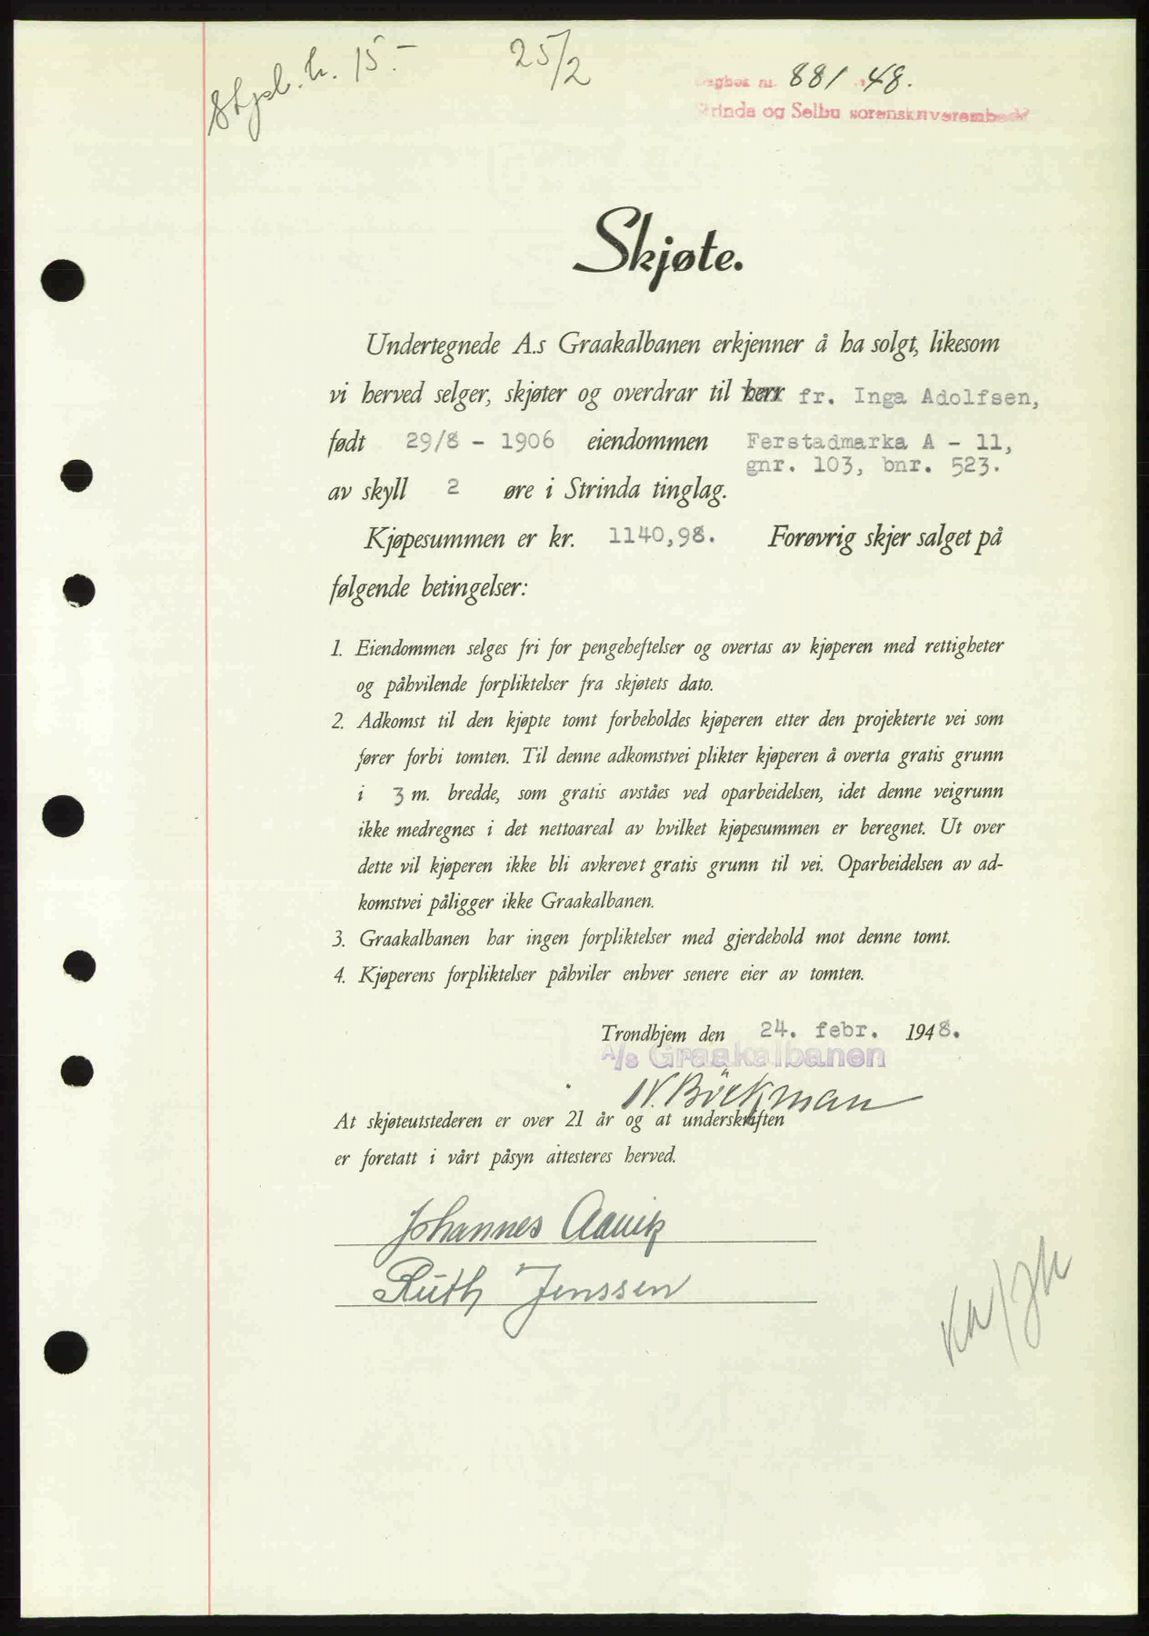 Stpb. kr. 15.-
25/2
Dagbok nr. 881 - 48.
Strinda og Selbu sorenskriverembede
Skjøte.
Undertegnede A.s Graakalbanen erkjenner å ha solgt, likesom
vi herved selger, skjøter og overdrar til herr fr. Inga Adolfsen,
født 29/8 - 1906 eiendommen Ferstadmarka A - 11,
gnr. 103, bnr. 523.
av skyll 2 øre i Strinda tinglag.
Kjøpesummen er kr. 1140,98. Forøvrig skjer salget på
følgende betingelser:
1. Eiendommen selges fri for pengeheftelser og overtas av kjøperen med rettigheter
og påhvilende forpliktelser fra skjøtets dato.
2. Adkomst til den kjøpte tomt forbeholdes kjøperen etter den projekterte vei som
fører forbi tomten. Til denne adkomstvei plikter kjøperen å overta gratis grunn
i 3 m. bredde, som gratis avståes ved oparbeidelsen, idet denne veigrunn
ikke medregnes i det nettoareal av hvilket kjøpesummen er beregnet. Ut over
dette vil kjøperen ikke bli avkrevet gratis grunn til vei. Oparbeidelsen av ad-
komstvei påligger ikke Graakalbanen.
3. Graakalbanen har ingen forpliktelser med gjerdehold mot denne tomt.
4. Kjøperens forpliktelser påhviler enhver senere eier av tomten.
Trondhjem den 24. febr. 1948.
A/s Graakalbanen
N. Böckman
At skjøteutstederen er over 21 år og at underskriften
er foretatt i vårt påsyn attesteres herved.
Johannes Aavik
Ruth Jenssen